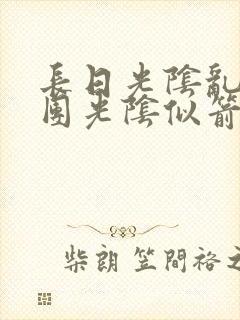 長日光陰亂
園光陰似箭
柴朗 笠間裕之